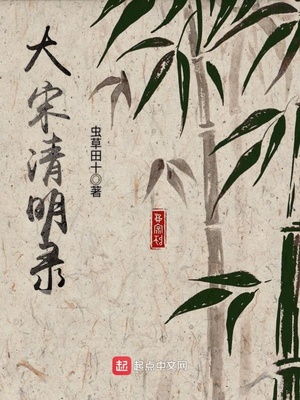 大宋清明录
虫草田十◎著
起
起点中文网